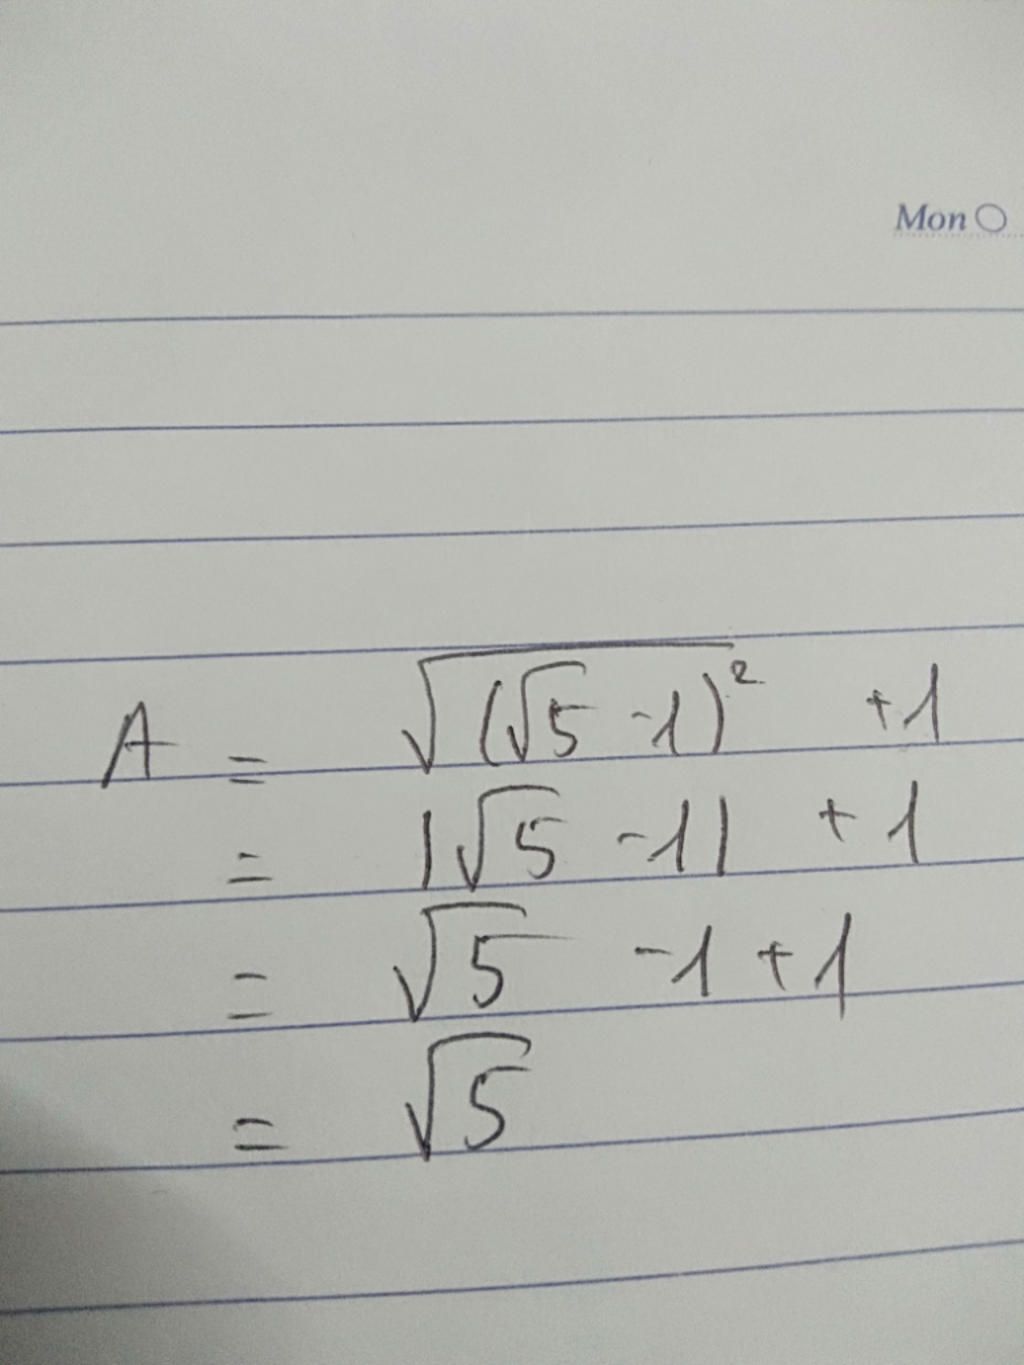 Mon
A = √(√5 -1)² +1
= |√5 -1| +1
= √5 -1 +1
= √5